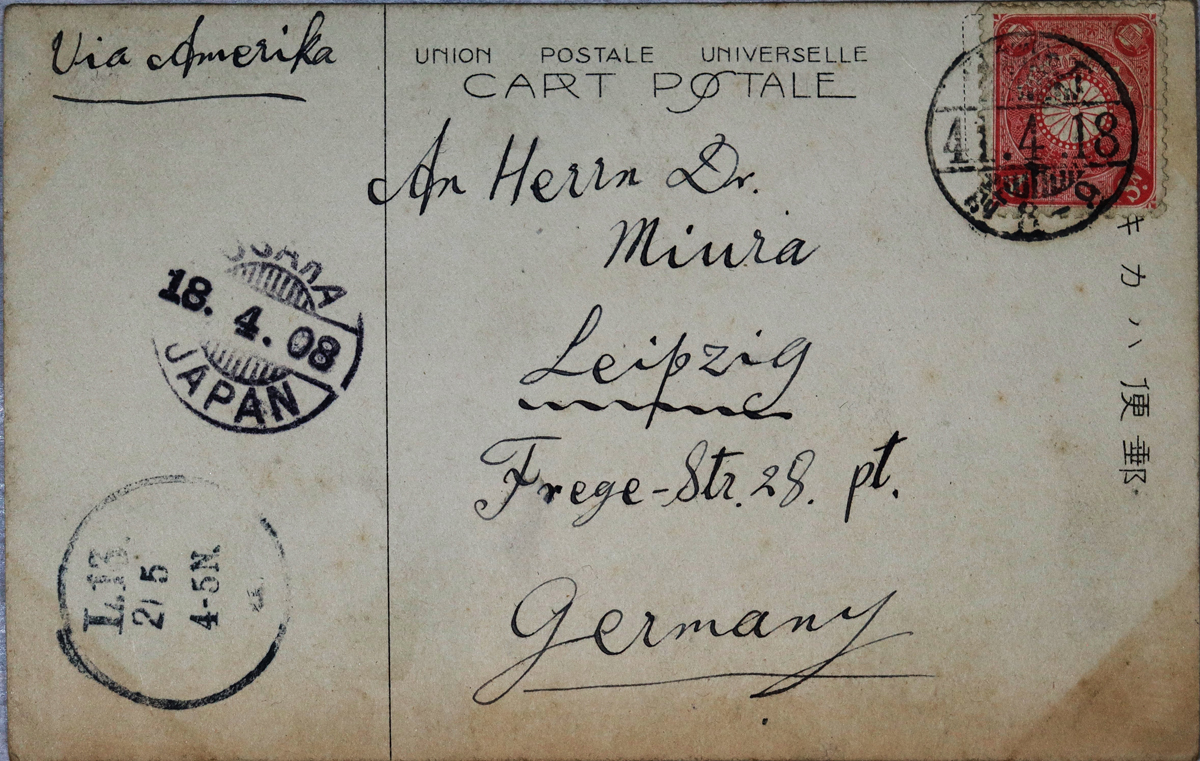 Via Amerika
UNION POSTALE UNIVERSELLE
CARTE POSTALE
An Herrn Dr.
Miura
Leipzig
Frege-Str. 28. pt.
Germany
41.4.18
8-9
キカハ便郵
OSAKA
18.4.08
JAPAN
L.13.
21 5
4-5N.